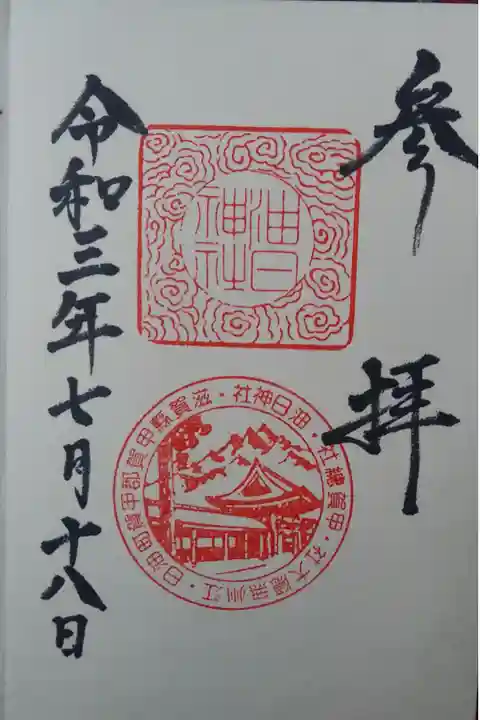 参拝
油日
神社
油日神社・滋賀縣甲賀郡甲賀町油日・江州無隠大社・甲賀總社・
令和三年七月十八日